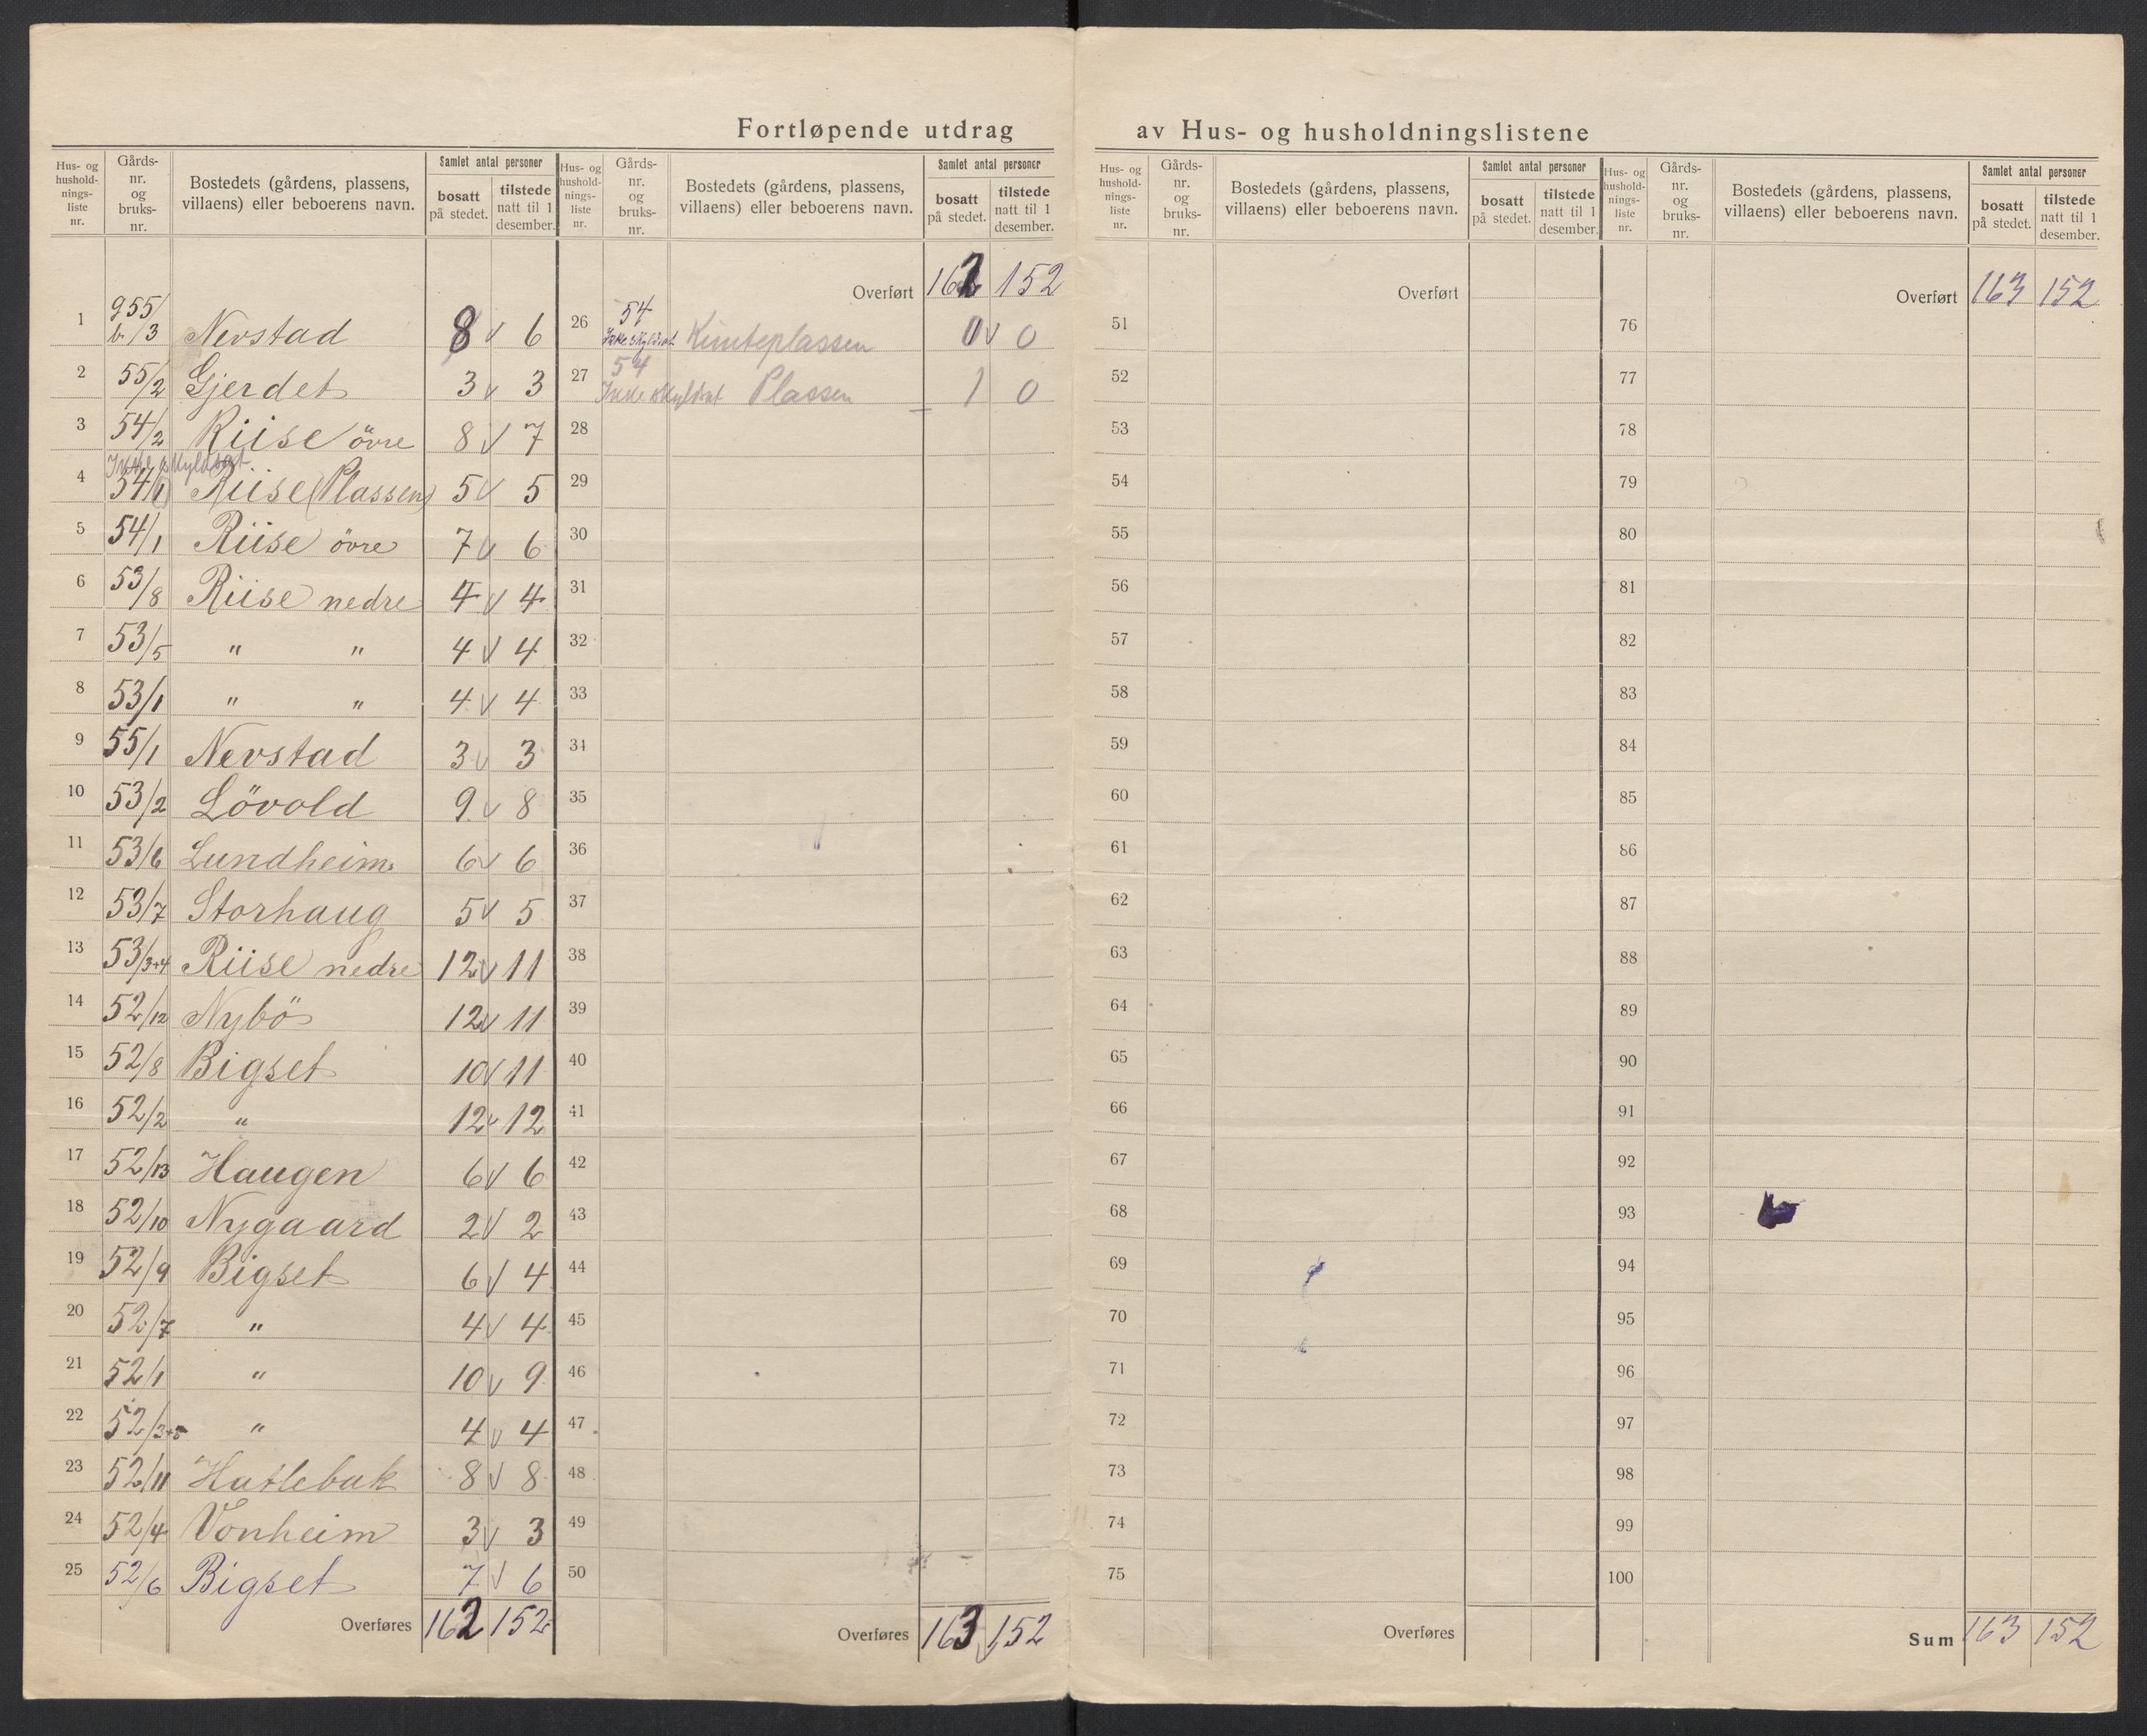 Fortløpende utdrag av Hus- og husholdningslistene
Hus- og husholdnings-liste nr. | Gårds-nr. og bruks-nr. | Bostedets (gårdens, plassens, villaens) eller beboerens navn. | Samlet antal personer | bosatt på stedet. | tilstede natt til 1 desember.
1 g 55/ b. /3 Nevstad 8 v 6
2 55/2 Gjerdet 3 v 3
3 54/2 Riise övre 8 v 7
Ikke skyldsat
4 54/1 Riise (Plassen) 5 v 5
5 54/1 Riise övre 7 v 6
6 53/8 Riise nedre 4 v 4
7 53/5 " " 4 v 4
8 53/1 " " 4 v 4
9 55/1 Nevstad 3 v 3
10 53/2 Lövold 9 v 8
11 53/6 Lundheim 6 v 6
12 53/7 Storhaug 5 v 5
13 53/3+4 Riise nedre 12 v 11
14 52/12 Nybö 12 v 11
15 52/8 Bigset 10 v 11
16 52/2 " 12 v 12
17 52/13 Haugen 6 v 6
18 52/10 Nygaard 2 v 2
19 52/9 Bigset 6 v 4
20 52/7 " 4 v 4
21 52/1 " 10 v 9
22 52/3+5 " 4 v 4
23 52/11 Hatlebak 8 v 8
24 52/4 Vonheim 3 v 3
25 52/6 Bigset 7 v 6
Overføres 162 152
Hus- og husholdnings-liste nr. | Gårds-nr. og bruks-nr. | Bostedets (gårdens, plassens, villaens) eller beboerens navn. | Samlet antal personer | bosatt på stedet. | tilstede natt til 1 desember.
Overført 162 152
26 54 Ikke skyldsat 0 v 0
27 54 Ikke skyldsat Plassen 1 0
28
29
30
31
32
33
34
35
36
37
38
39
40
41
42
43
44
45
46
47
48
49
50
Overføres 163 v 152
Hus- og husholdnings-liste nr. | Gårds-nr. og bruks-nr. | Bostedets (gårdens, plassens, villaens) eller beboerens navn. | Samlet antal personer | bosatt på stedet. | tilstede natt til 1 desember.
Overført
51
52
53
54
55
56
57
58
59
60
61
62
63
64
65
66
67
68
69
70
71
72
73
74
75
Overføres
Hus- og husholdnings-liste nr. | Gårds-nr. og bruks-nr. | Bostedets (gårdens, plassens, villaens) eller beboerens navn. | Samlet antal personer | bosatt på stedet. | tilstede natt til 1 desember.
Overført 163 152
76
77
78
79
80
81
82
83
84
85
86
87
88
89
90
91
92
93
94
95
96
97
98
99
100
Sum 163 152